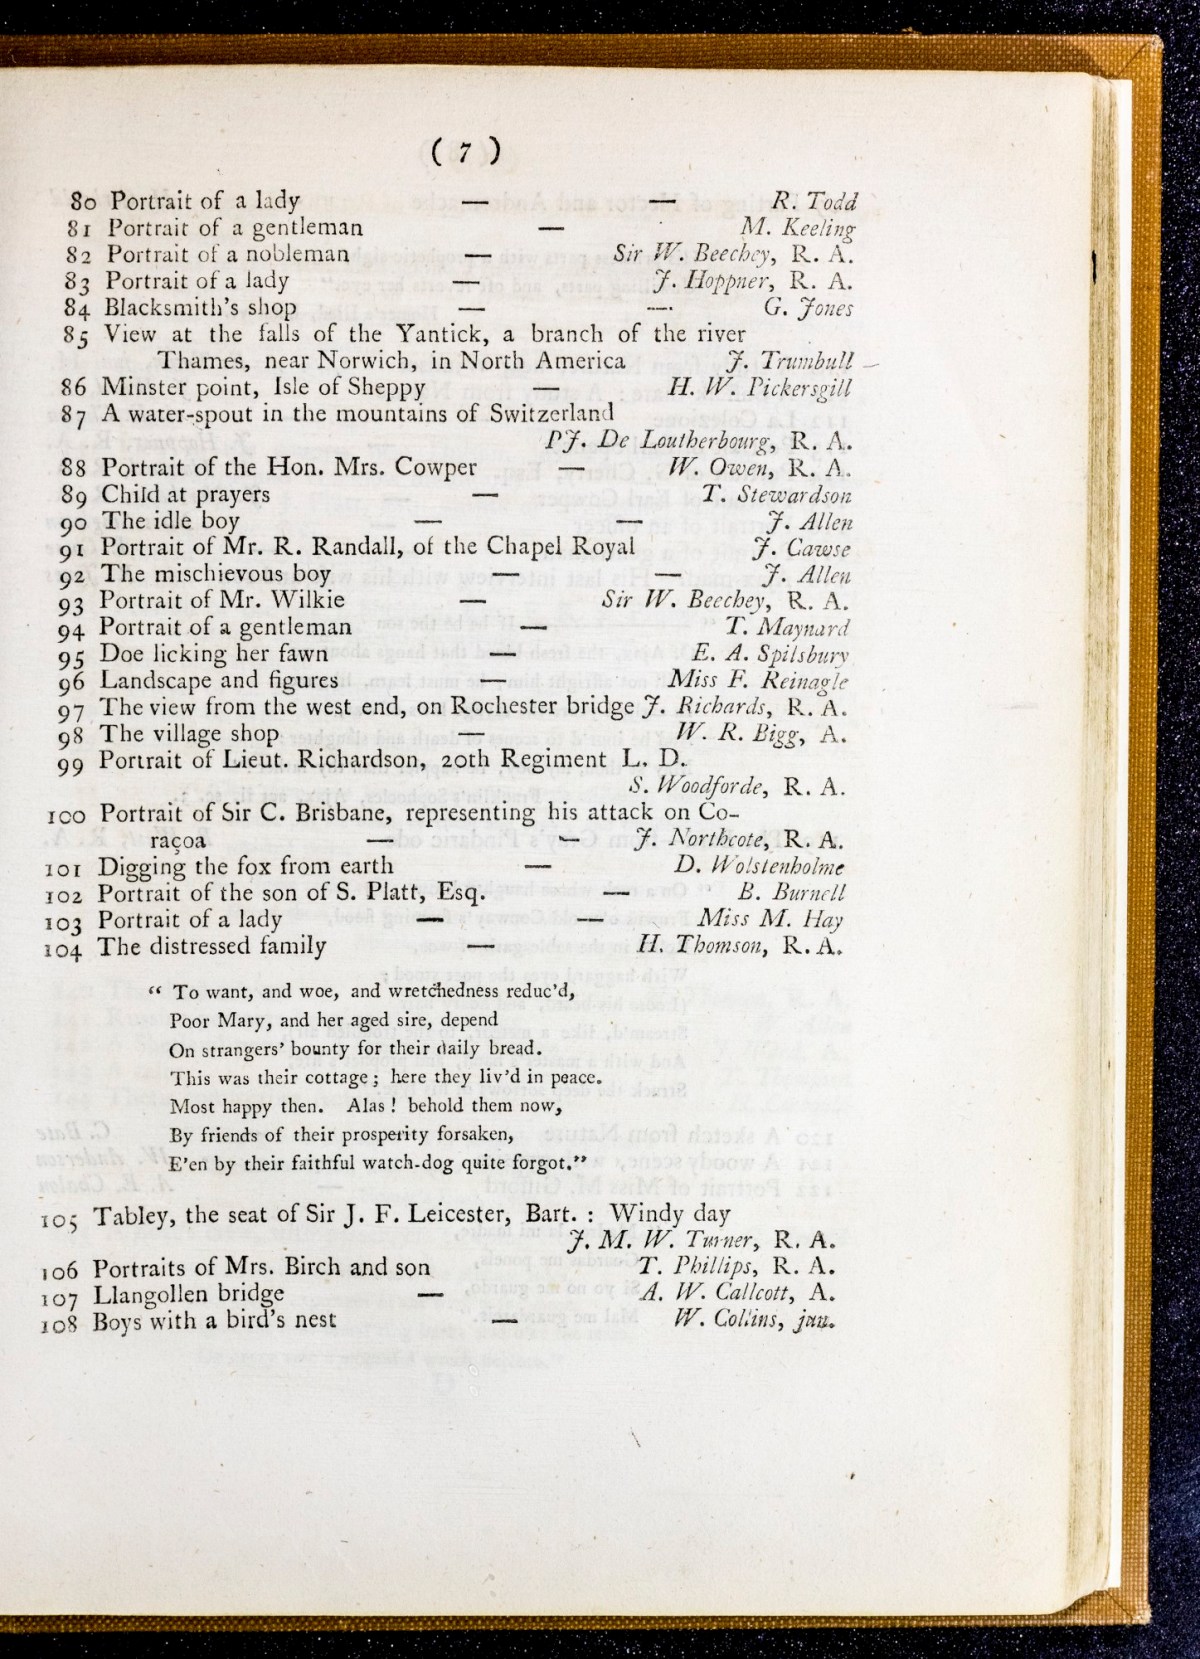 ( 7 )
80 Portrait of a lady — — R. Todd
81 Portrait of a gentleman — M. Keeling
82 Portrait of a nobleman — Sir W. Beechey, R. A.
83 Portrait of a lady — J. Hoppner, R. A.
84 Blacksmith's shop — — G. Jones
85 View at the falls of the Yantick, a branch of the river
Thames, near Norwich, in North America J. Trumbull
86 Minster point, Isle of Sheppy — H. W. Pickersgill
87 A water-spout in the mountains of Switzerland
P. J. De Loutherbourg, R. A.
88 Portrait of the Hon. Mrs. Cowper — W. Owen, R. A.
89 Child at prayers — T. Stewardson
90 The idle boy — — J. Allen
91 Portrait of Mr. R. Randall, of the Chapel Royal J. Cawse
92 The mischievous boy — — J. Allen
93 Portrait of Mr. Wilkie — Sir W. Beechey, R. A.
94 Portrait of a gentleman — T. Maynard
95 Doe licking her fawn — E. A. Spilsbury
96 Landscape and figures — Miss F. Reinagle
97 The view from the west end, on Rochester bridge J. Richards, R. A.
98 The village shop — W. R. Bigg, A.
99 Portrait of Lieut. Richardson, 20th Regiment L. D.
S. Woodforde, R. A.
100 Portrait of Sir C. Brisbane, representing his attack on Co-
raçoa — — J. Northcote, R. A.
101 Digging the fox from earth — D. Wolstenholme
102 Portrait of the son of S. Platt, Esq. — B. Burnell
103 Portrait of a lady — — Miss M. Hay
104 The distressed family — H. Thomson, R. A.
“ To want, and woe, and wretchedness reduc'd,
Poor Mary, and her aged sire, depend
On strangers' bounty for their daily bread.
This was their cottage; here they liv'd in peace.
Most happy then. Alas! behold them now,
By friends of their prosperity forsaken,
E'en by their faithful watch-dog quite forgot.”
105 Tabley, the seat of Sir J. F. Leicester, Bart. : Windy day
J. M. W. Turner, R. A.
106 Portraits of Mrs. Birch and son T. Phillips, R. A.
107 Llangollen bridge — A. W. Callcott, A.
108 Boys with a bird's nest — W. Collins, jun.